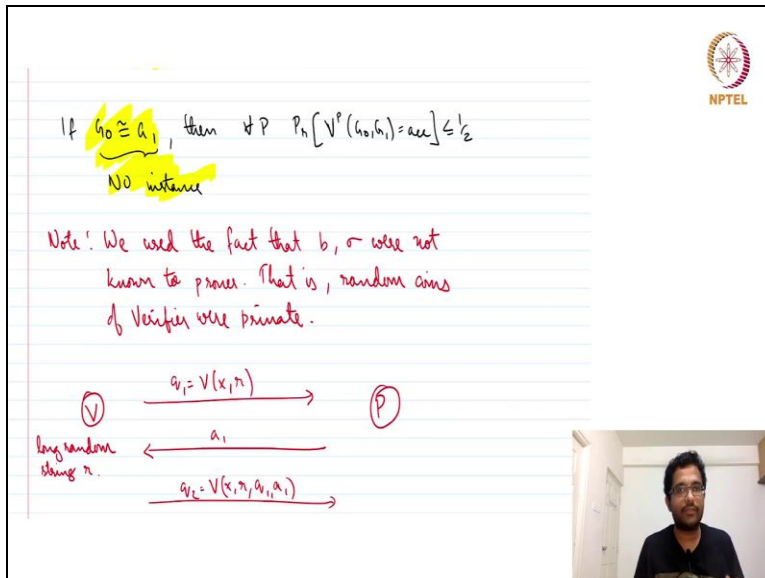 NPTEL
If G₀ ≅ G₁, then ∀ P Pr[V^P(G₀,G₁) = acc] ≤ 1/2
NO instance
Note: We used the fact that b, σ were not
known to prover. That is, random coins
of Verifier were private.
q₁ = V(x, r)
V
P
a₁
long random
string r.
q₂ = V(x, r, q₁, a₁)